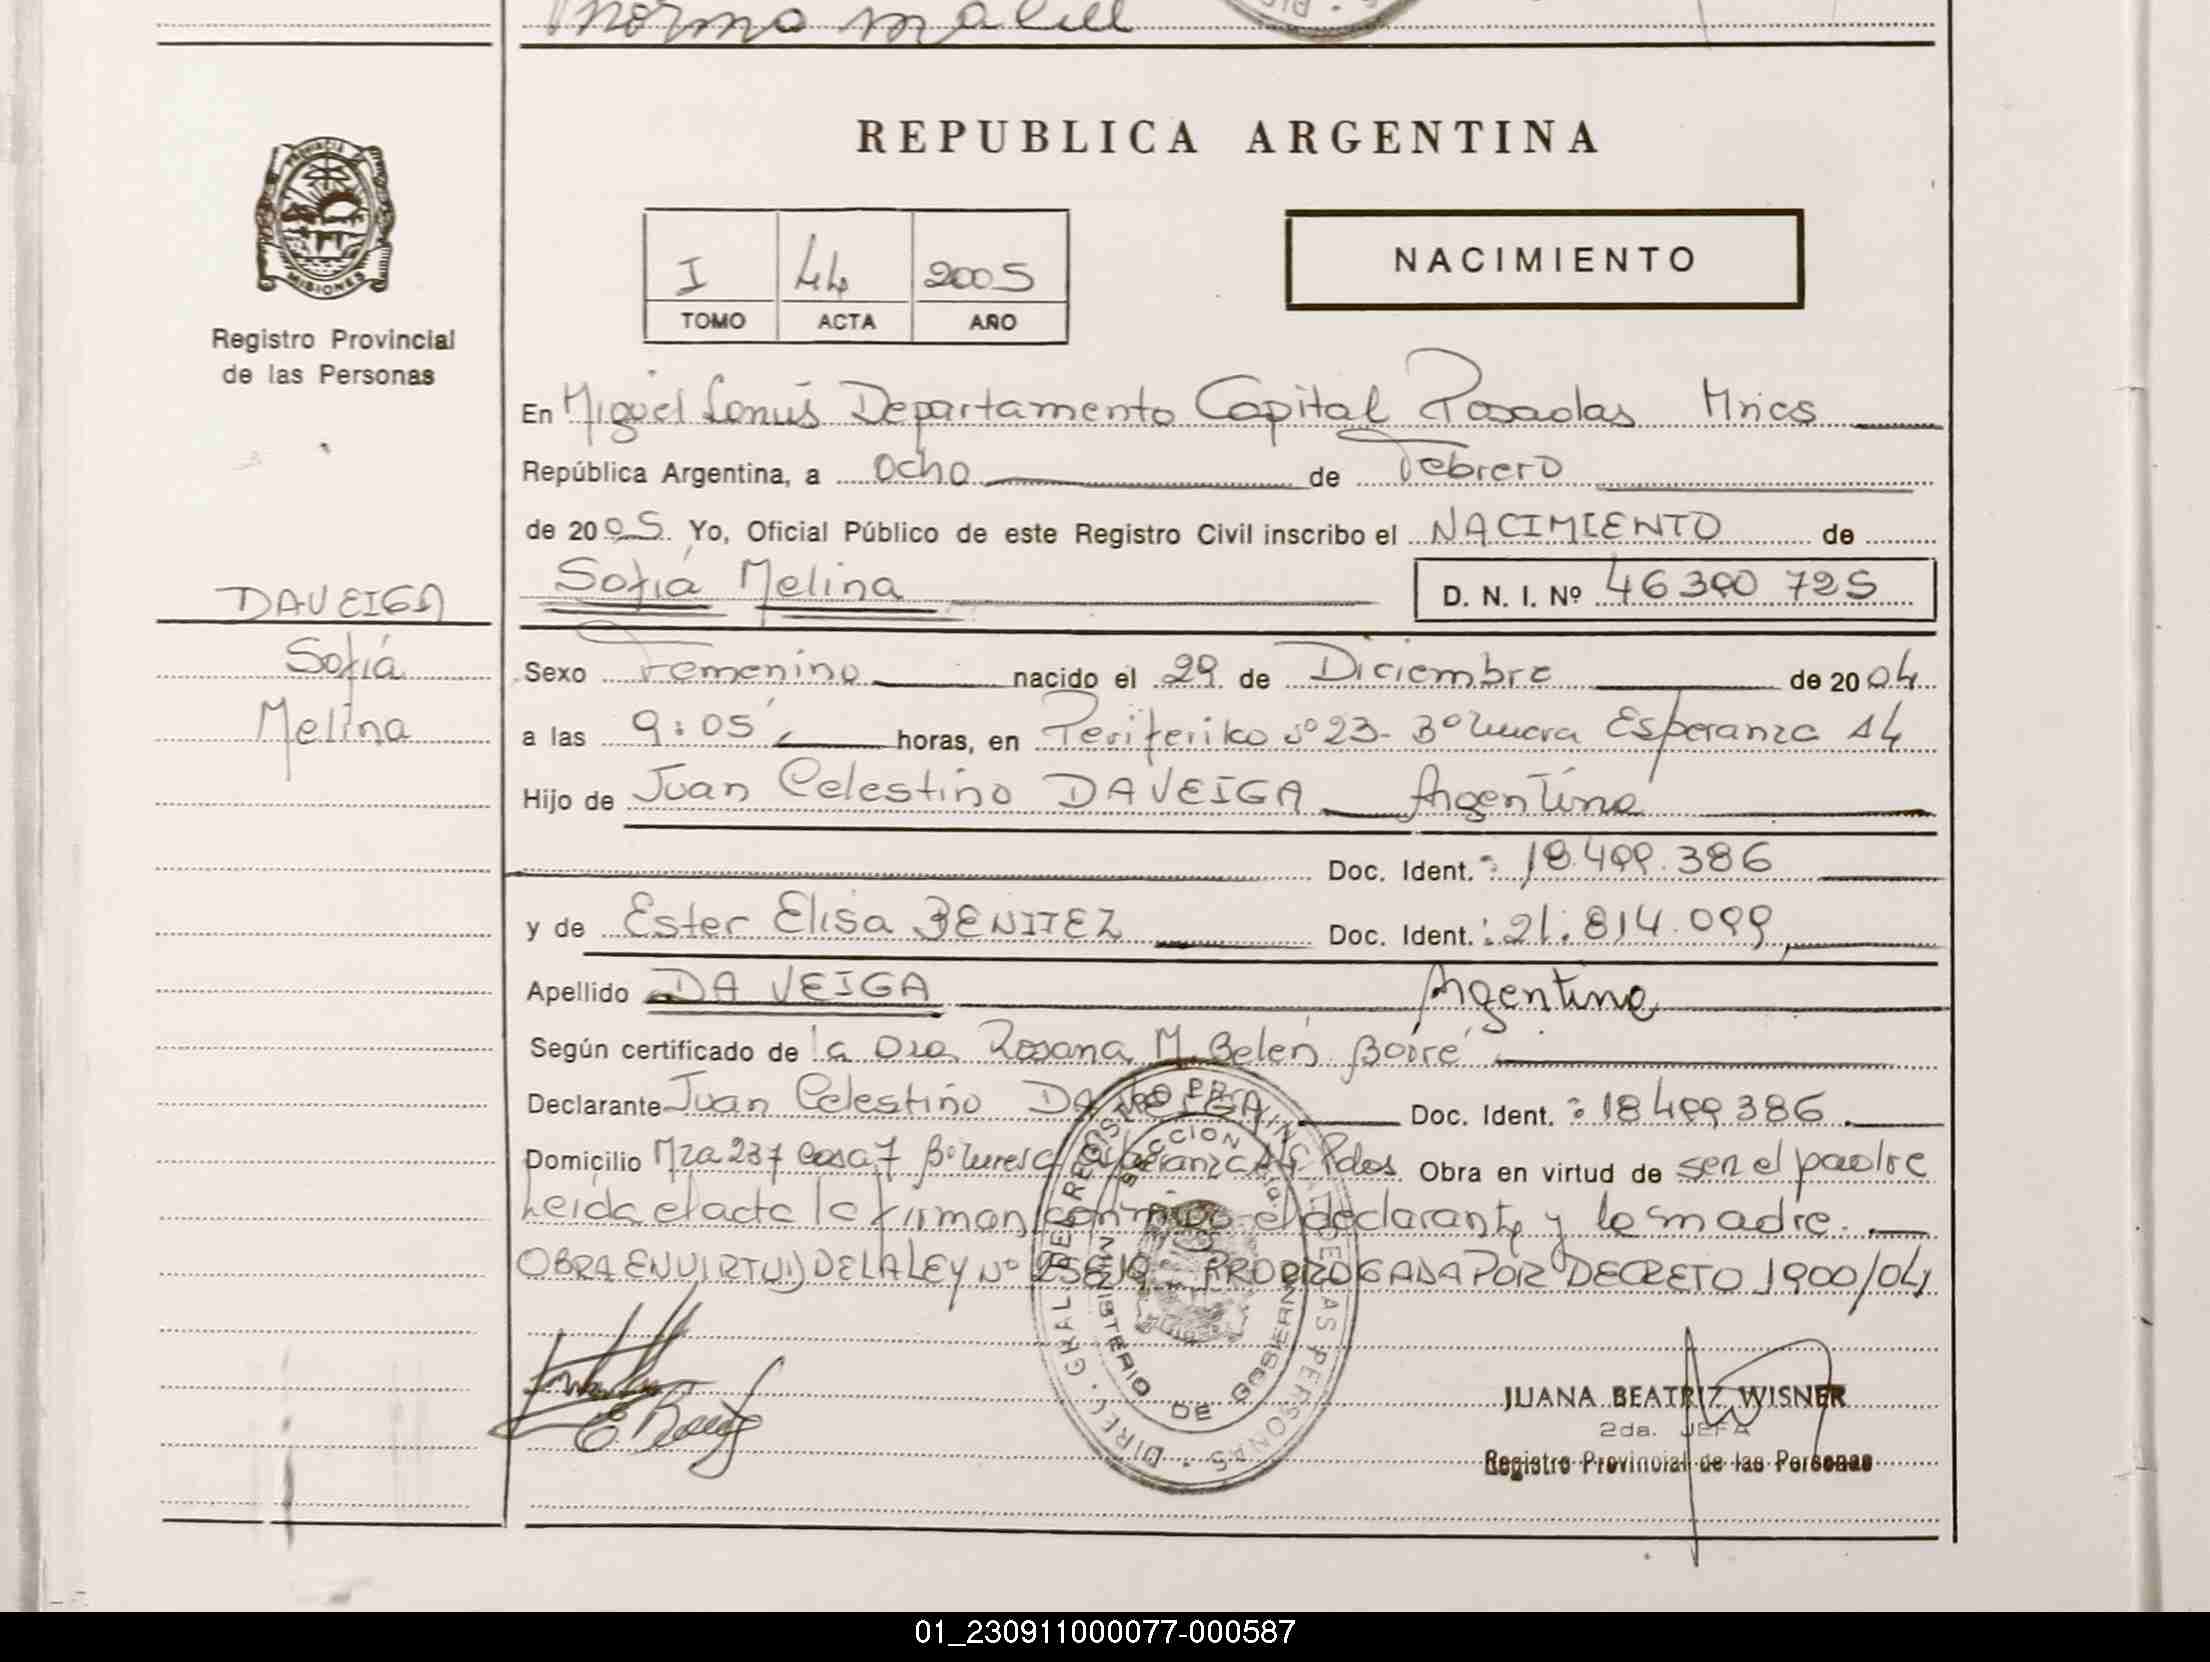 Norma
REPUBLICA ARGENTINA
PROVINCIA DE
MISIONES
Registro Provincial
de las Personas
I 44 2005
TOMO ACTA AÑO
NACIMIENTO
En Miguel Lanús Departamento Capital Posadas Mnes
República Argentina, a ocho de Febrero
de 2005. Yo, Oficial Público de este Registro Civil inscribo el NACIMIENTO de
Sofiá Melina D. N. I. Nº 46 300 725
DAVEIGA
Sofiá
Melina
Sexo Femenino nacido el 29 de Diciembre de 2004
a las 9:05' horas, en Periferiko nº 23- Bº Nueva Esperanza A4
Hijo de Juan Celestino DAVEIGA Argentino
Doc. Ident. : 18.499.386
y de Ester Elisa BENITEZ Doc. Ident. : 21.814.099,
Apellido DA VEIGA Argentina
Según certificado de la Dra Rosana M. Belén
Declarante Juan Celestino DA VEIGA Doc. Ident. : 18499386.
Domicilio Mza 237 casa 7 Bº Nueva Esperanza A4 Pdas Obra en virtud de ser el padre
Leida el acta la firman conmigo el declarante y la madre.
OBRA EN VIRTUD DE LA LEY Nº 25819 PRORROGADA POR DECRETO 1900/04
DIREC. GRAL. DEL REGISTRO PROVINCIAL DE LAS PERSONAS
SECCION
MINISTERIO DE GOBIERNO
E. Benitez
JUANA BEATRIZ WISNER
2da. JEFA
Registro Provincial de las Personas
01_230911000077-000587